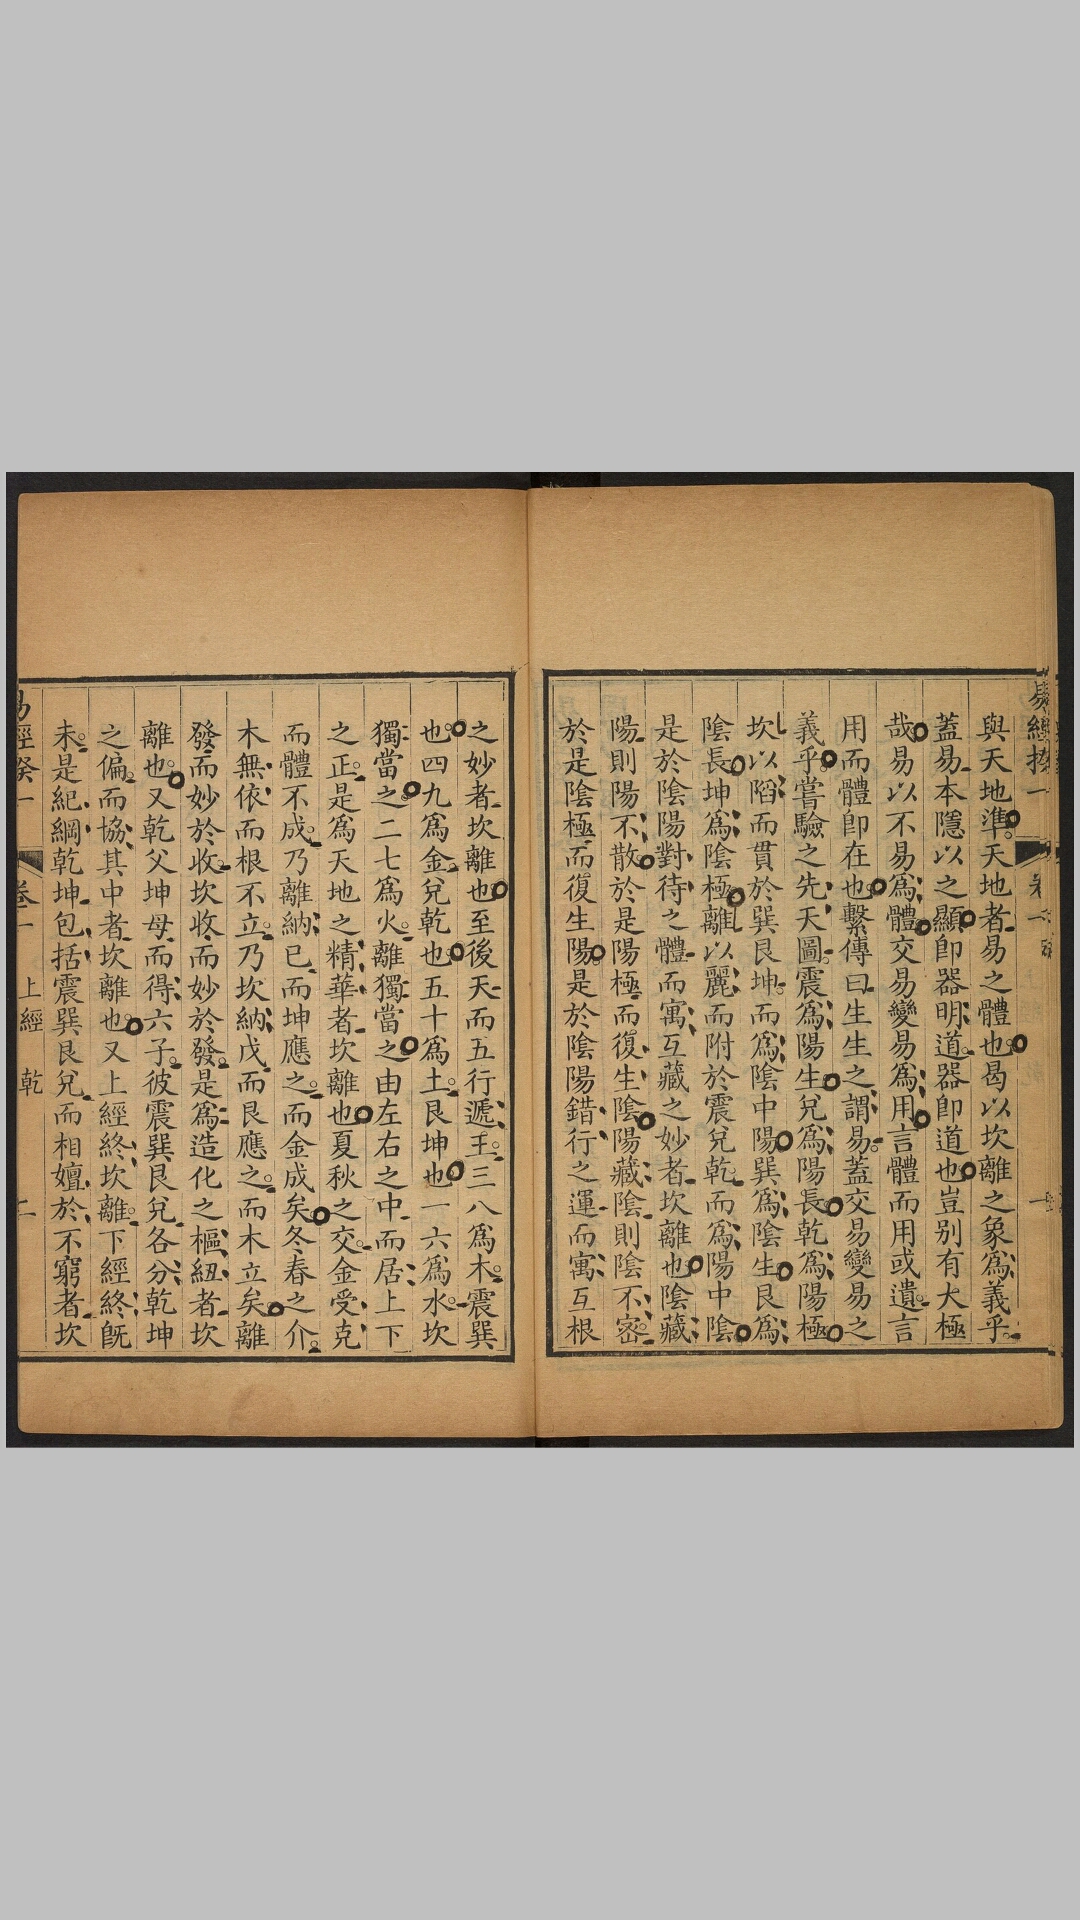 與天地準天地者易之體也曷以坎離之象爲義乎
蓋易本隱以之顯卽器明道器卽道也豈别有大極
哉易以不易爲體交易變易爲用言體而用或遺言
用而體卽在也繫傳曰生生之謂易蓋交易變易之
義乎嘗驗之先天圖震爲陽生兌爲陽長乾爲陽極
坎以陷而貫於巽艮坤而爲陰中陽巽爲陰生艮爲
陰長坤爲陰極離以麗而附於震兌乾而爲陽中陰
是於陰陽對待之體而寓互藏之妙者坎離也陰藏
陽則陽不散於是陽極而復生陰陽藏陰則陰不密
於是陰極而復生陽是於陰陽錯行之運而寓互根
之妙者坎離也至後天而五行遞王三八爲木震巽
也四九爲金兌乾也五十爲土艮坤也一六爲水坎
獨當之二七爲火離獨當之由左右之中而居上下
之正是爲天地之精華者坎離也夏秋之交金受克
而體不成乃離納已而坤應之而金成矣冬春之介
木無依而根不立乃坎納戊而艮應之而木立矣離
發而妙於收坎收而妙於發是爲造化之樞紐者坎
離也又乾父坤母而得六子彼震巽艮兌各分乾坤
之偏而協其中者坎離也又上經終坎離下經終旣
未是紀綱乾坤包括震巽艮兌而相嬗於不窮者坎
卷一
上經 乾
二